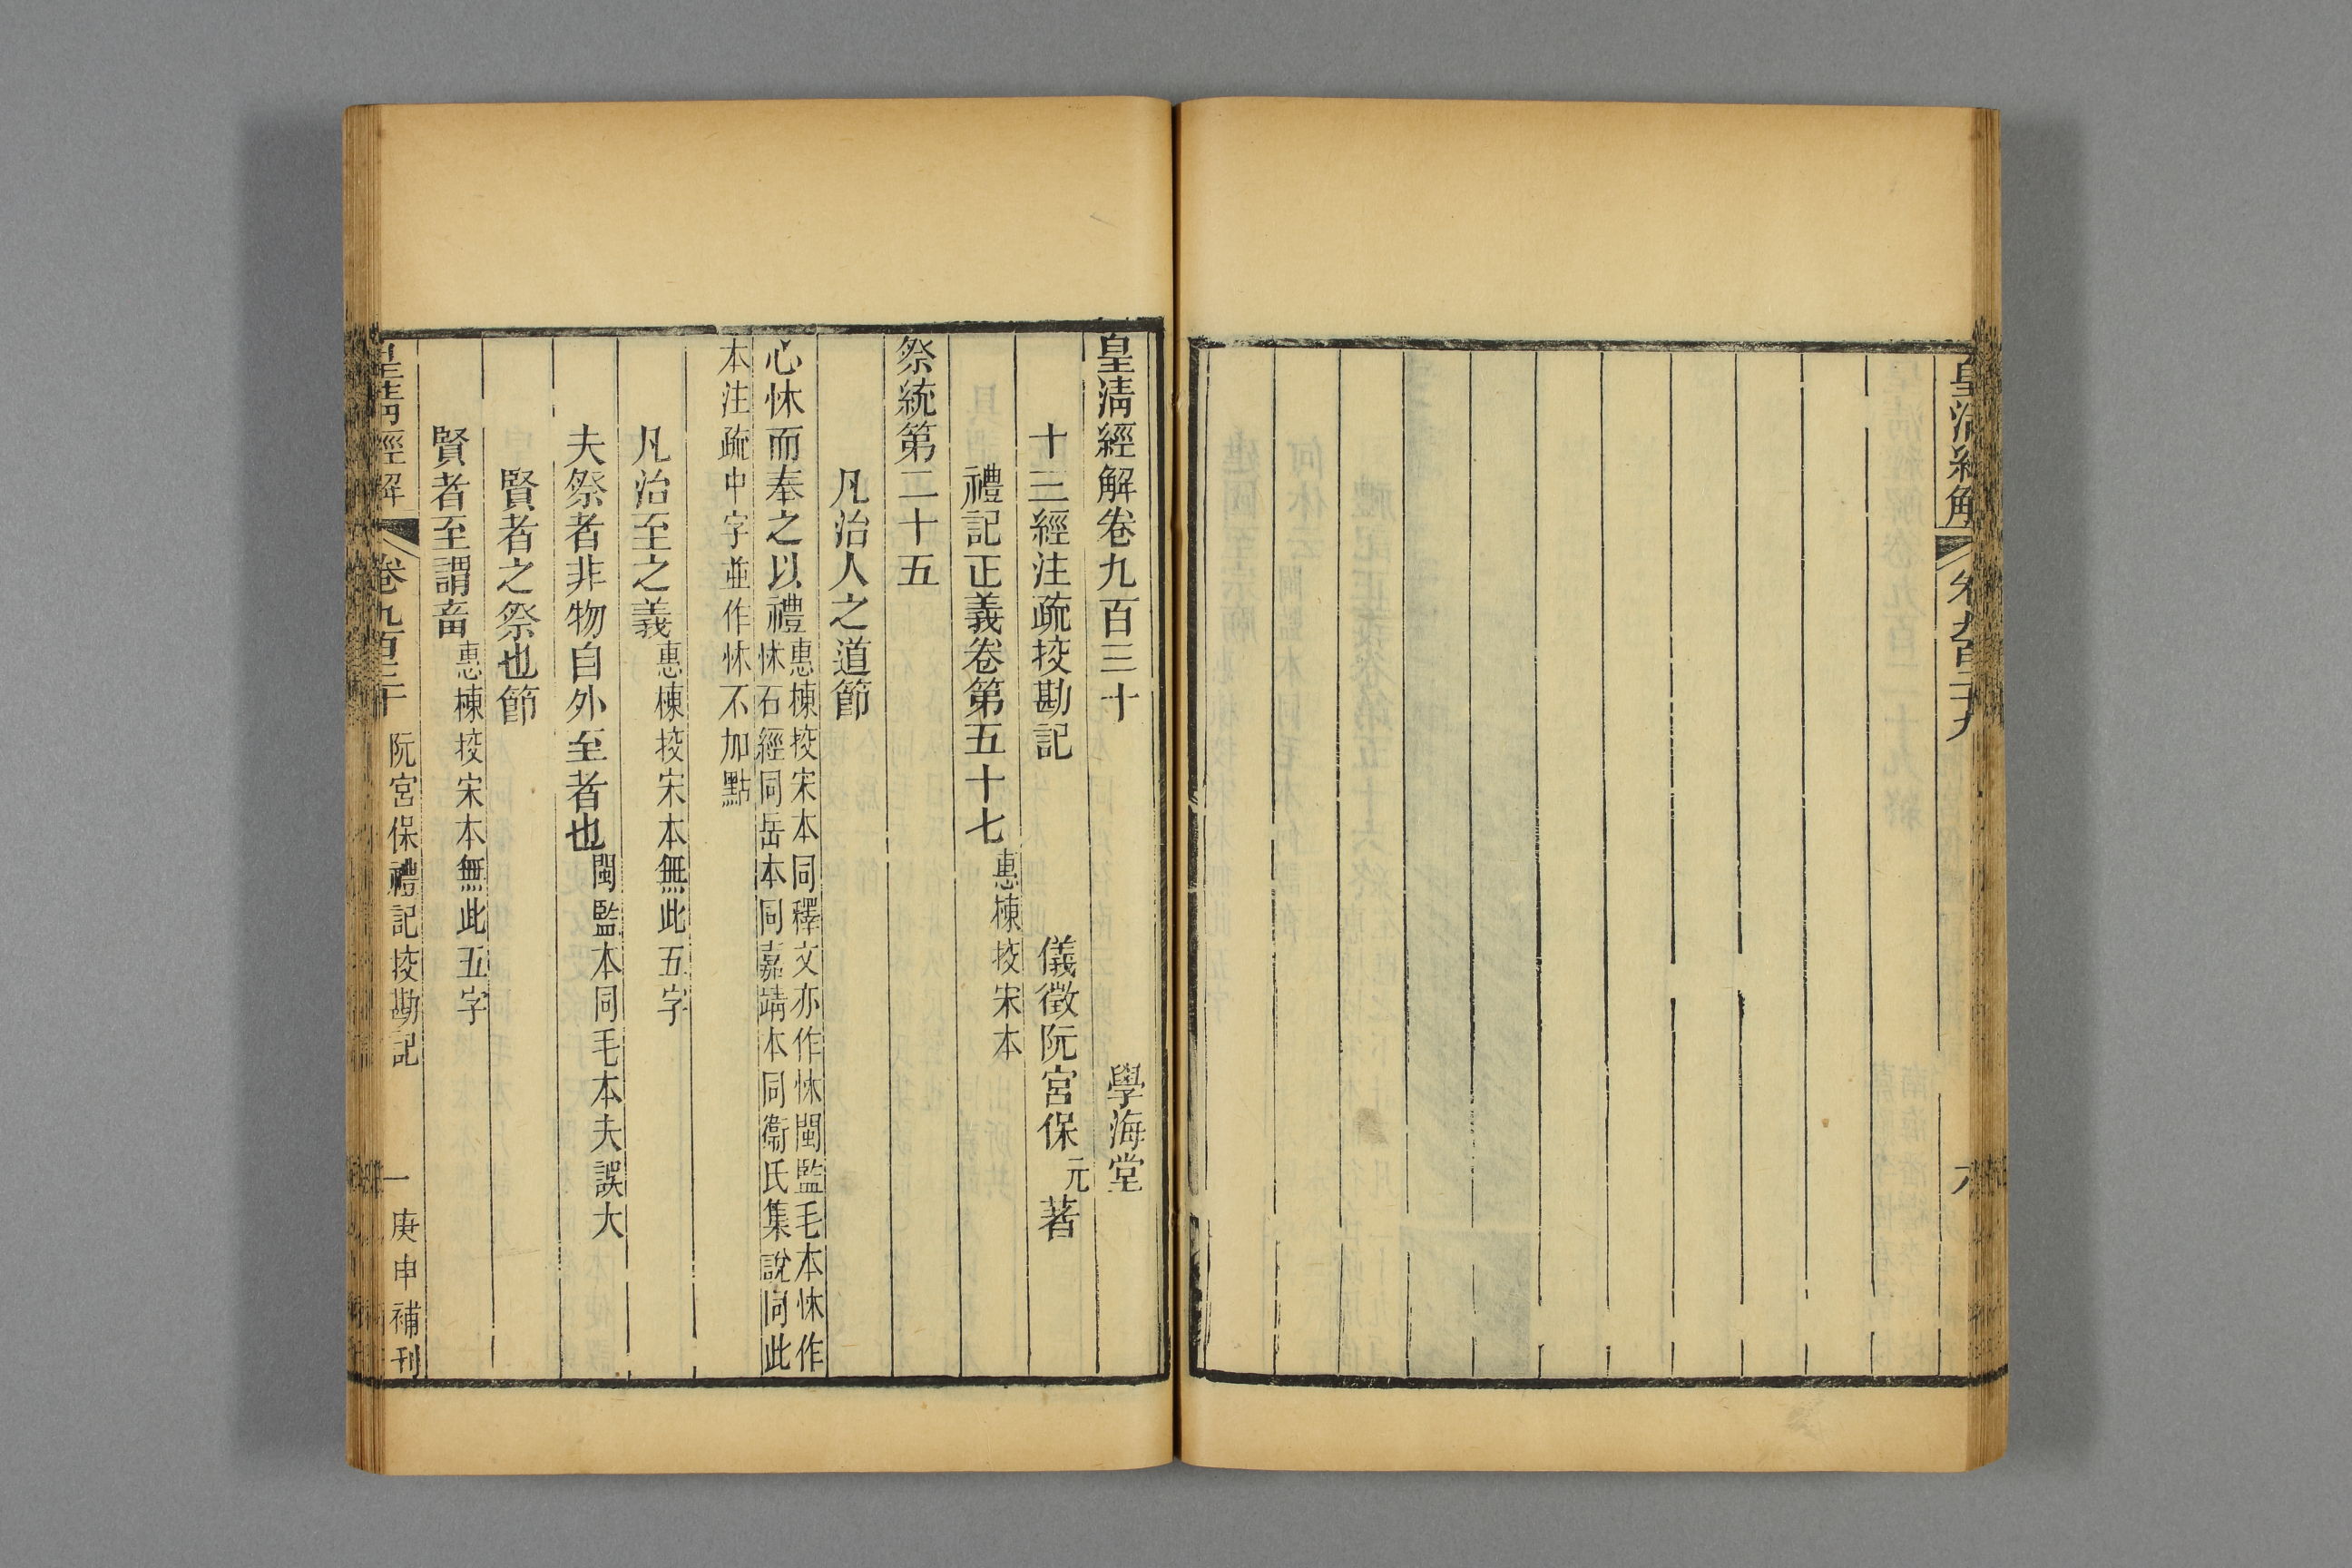 皇清經解
卷九百二十九
六
皇清經解卷九百三十
學海堂
十三經注疏挍勘記
儀徵阮宮保元著
禮記正義卷第五十七惠棟挍宋本
祭統第二十五
凡治人之道節
心怵而奉之以禮惠棟挍宋本同釋文亦作怵閩監毛本怵作
怵石經同岳本同嘉靖本同衞氏集說同此
本注疏中字並作怵不加點
凡治至之義惠棟挍宋本無此五字
夫祭者非物自外至者也閩監本同毛本夫誤大
賢者之祭也節
賢者至謂畜惠棟挍宋本無此五字
皇清經解
卷九百三十
阮宮保禮記挍勘記
一
庚申補刊